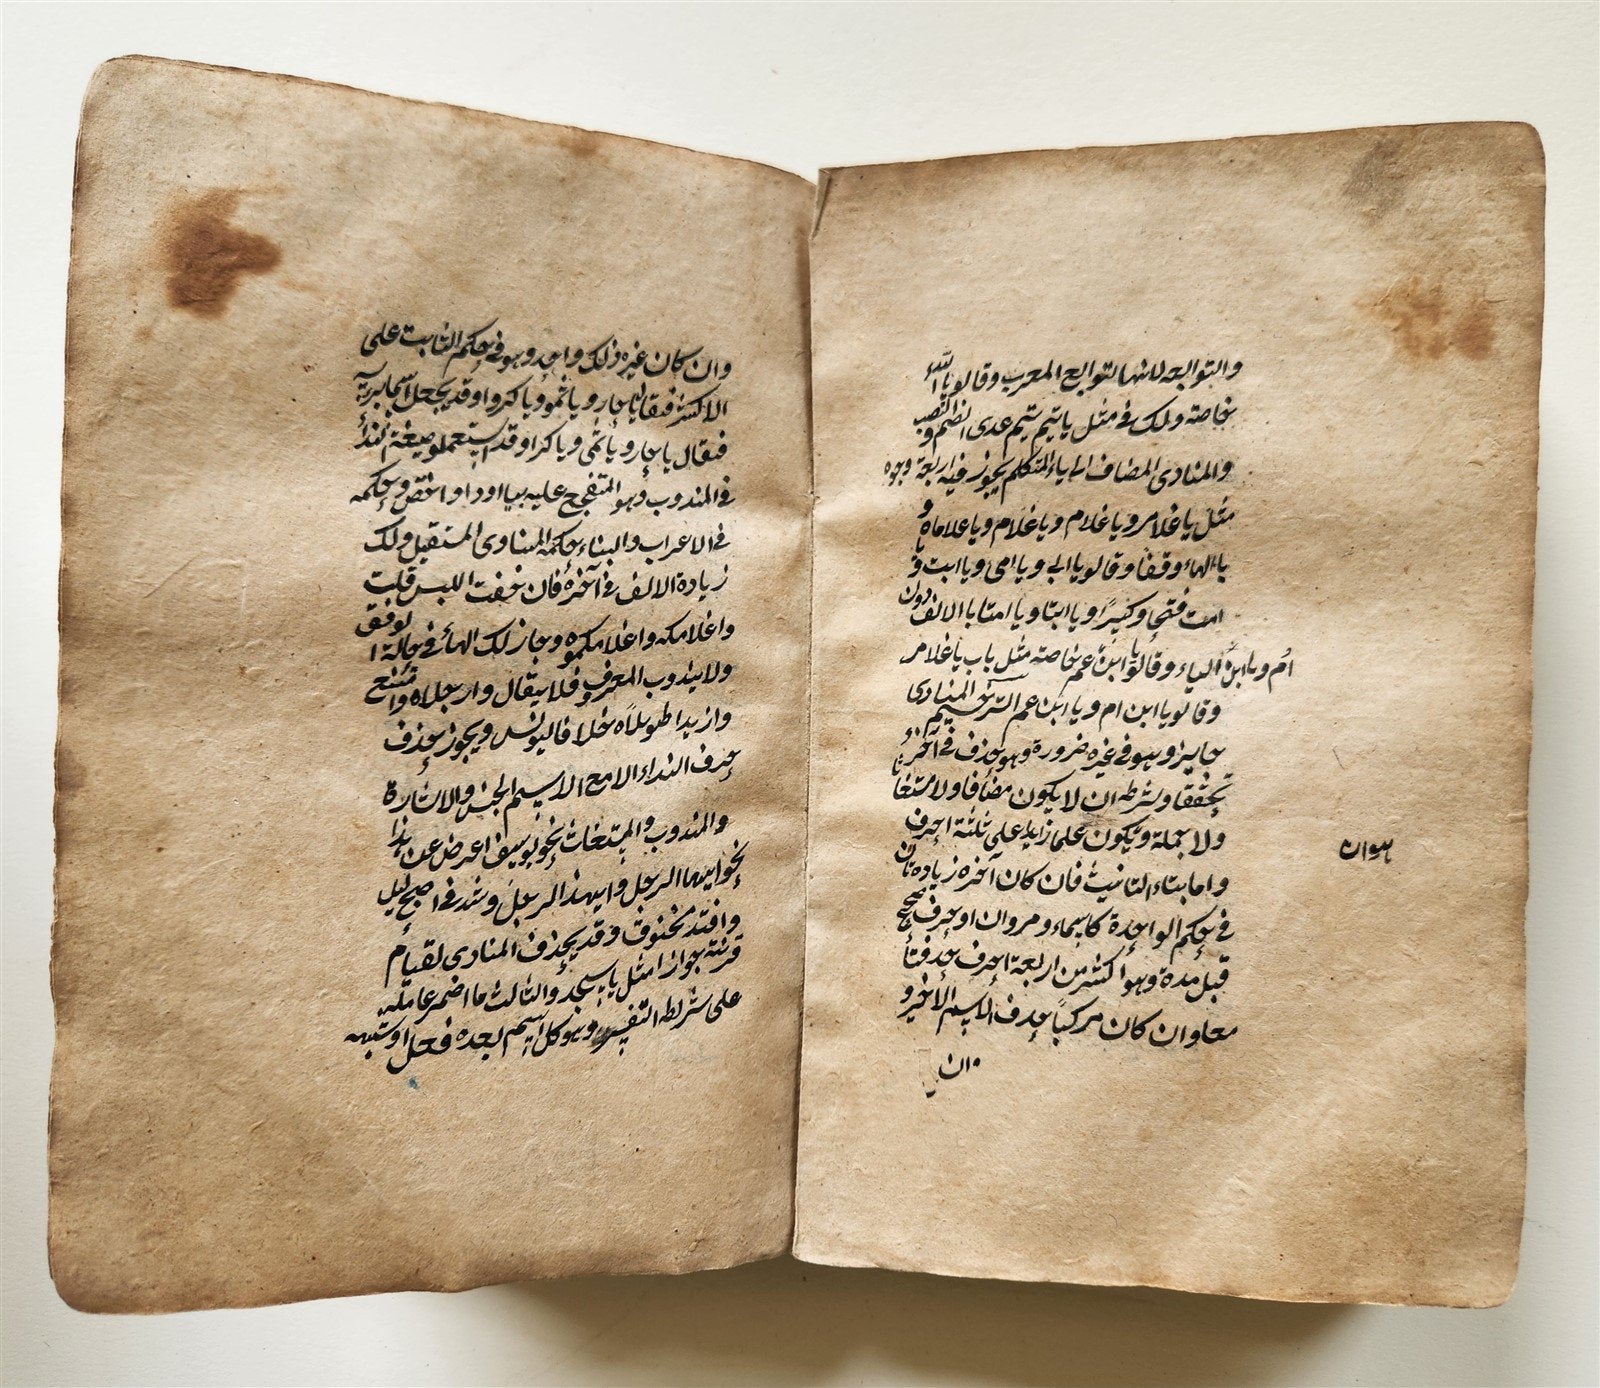 والتوابعه لانها لتوابع المعرب وقالو يا الله
خاصة ولك فى مثل يا تيم تيم عدى الضم و النصب
والمنادى المضاف الى ياء المتكلم يجوز فيه اربعة وجوه
مثل يا غلامى ويا غلام ويا غلام ويا غلاماه و
با الهاء وقفا وقالو يا ابى ويا امى ويا ابت و يا
امت فتحا وكسرا ويا ابتا ويا امتا با الالف دون
الياء وقالو يا ابن ام ويا ابن عم خاصة مثل باب يا غلامى
وقالو يا ابن ام ويا ابن عم الترخيم المنادى
جايز وهو فى غيره ضرورة وهو حذف فى آخره
تخفيفا وشرطه ان لا يكون مضافا ولا مستغاثا
ولا جملة ويكون علما زايد على ثلثة احرف
واما بتاء التانيث فان كان آخره زيادتان
فى حكم الواحدة كاسماء ومروان او حرف صحيح
قبل مدة وهو اكثر من اربعة احرف حذفتا
معا وان كان مركبا حذف الاسم الاخير و
ان
وان كان غيره ذلك واحد وهو فى حكم الثابت على
الاكثر فيقال يا حار ويا ثمو ويا كرو او قد يجعل اسما برية
فيقال يا حار ويا ثمى ويا كرا وقد استعملو صيغة الندا
فى المندوب وهو المتفجع عليه بيا او وا واختص وحكمه
فى الاعراب والبناء حكمه المنادى المستقبل ولك
زيادة الالف فى آخره فان خفت اللبس قلت
واغلامكه واغلامكموه وجاز لك الهاء فى حالة الوقف
ولا يندوب المعروف فلا يقال وا رجلاه وامتنع
وازيدا طويلاه خلافا ليونس ويجوز حذف
حرف النداء الا مع الاسم الجنس والاشارة
والمندوب والمستغاث نحو يوسف اعرض عن هذا
نحو ايها الرجل وايهذا الرجل وشذ فى اصبح ليل
وافتد مخنوق وقد يحذف المنادى لقيام
قرينة جوازا مثل يا سجد والثالث ما اضمر عامله
على شريطه التفسير وهو كل اسم بعده فعل او شبهه